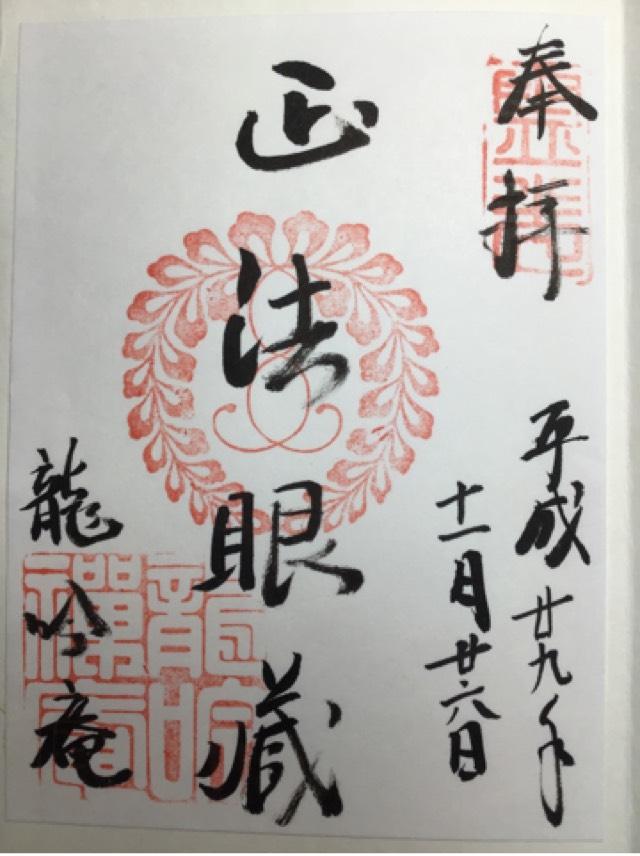 奉拝
平成廿九年
十一月廿六日
正法眼蔵
龍吟庵